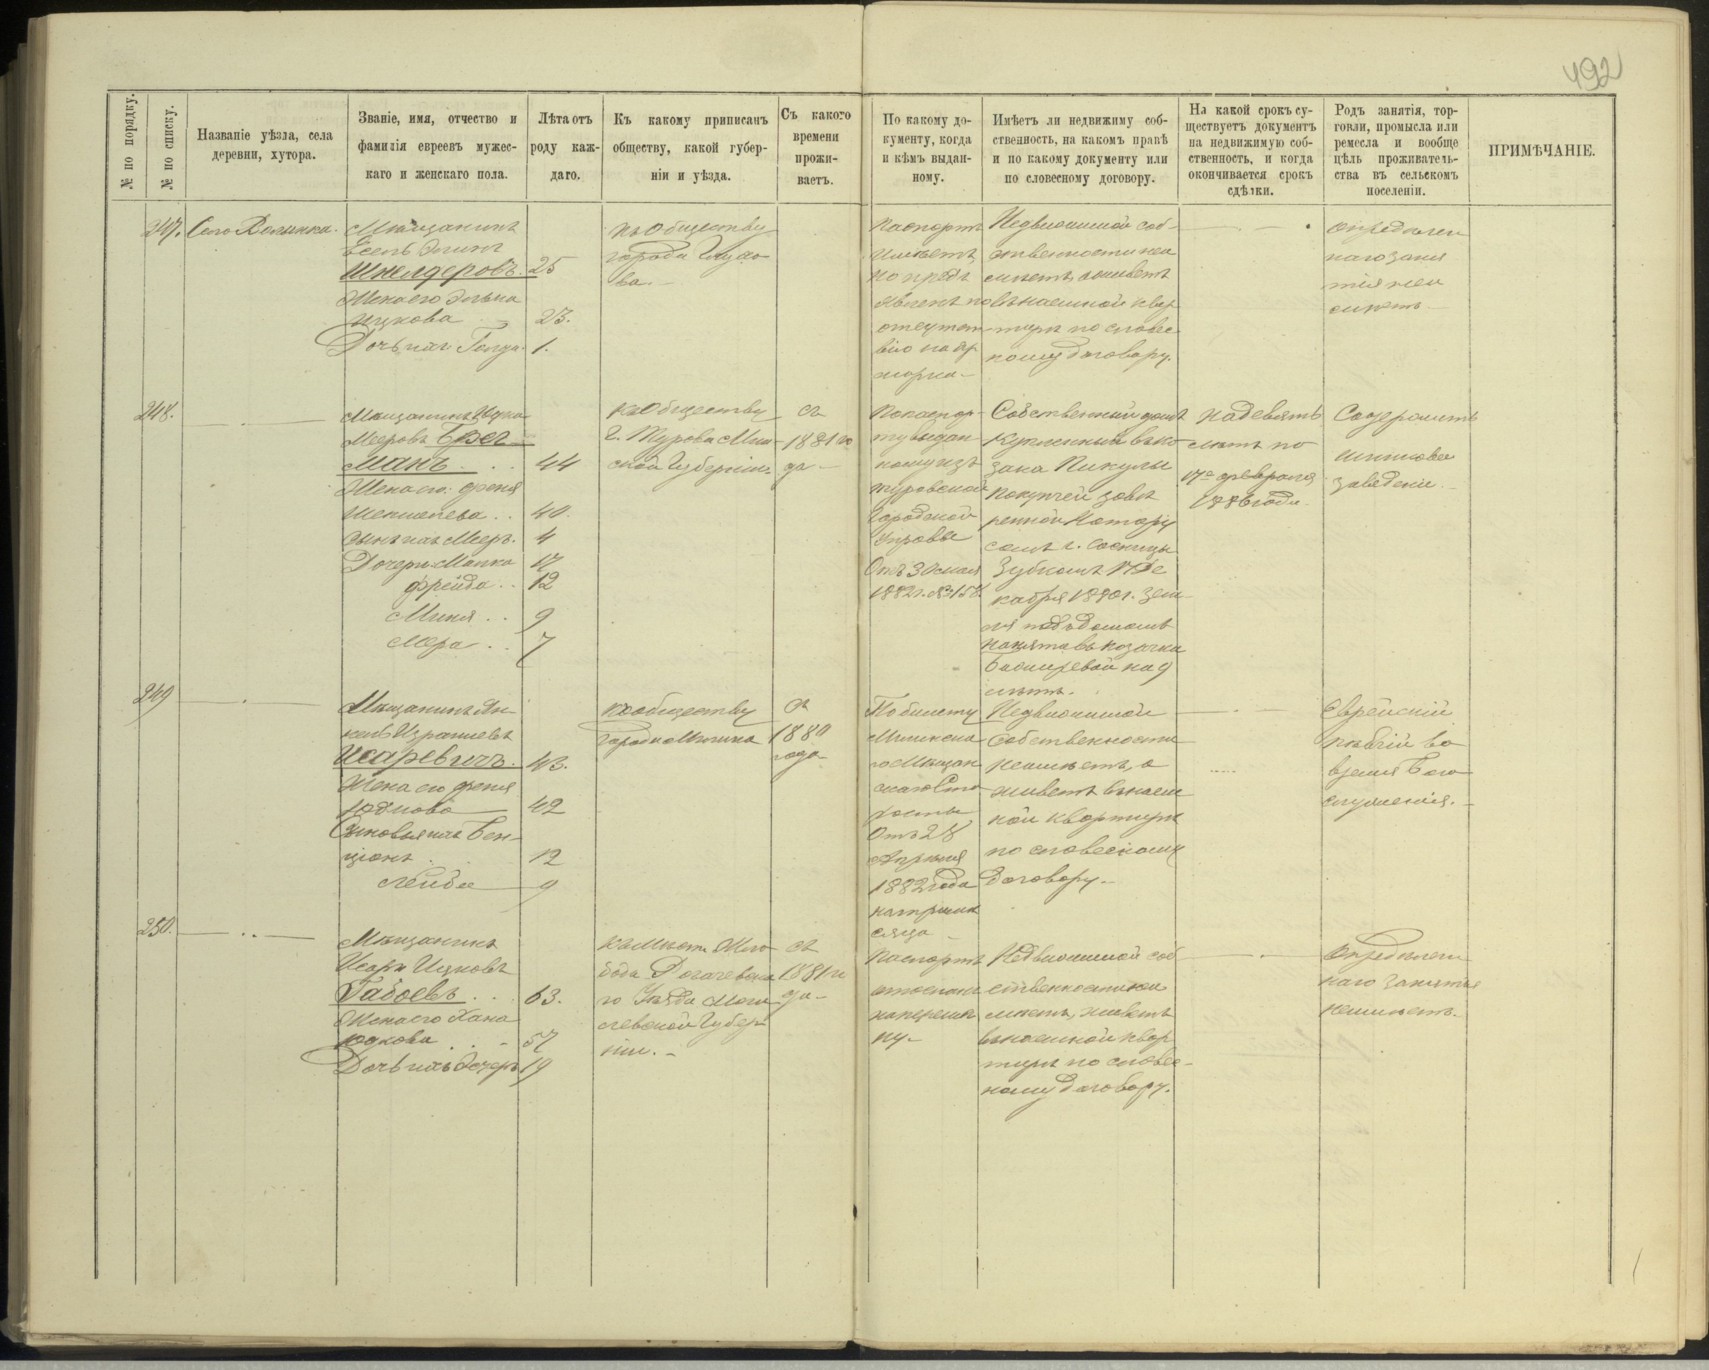 492
№ по порядку.
№ по списку.
Названіе уѣзда, села
деревни, хутора.
Званіе, имя, отчество и
фамилія евреевъ мужес-
каго и женскаго пола.
Лѣта отъ
роду каж-
даго.
Къ какому приписанъ
обществу, какой губер-
ніи и уѣзда.
Съ какого
времени
прожи-
ваетъ.
По какому до-
кументу, когда
и кѣмъ выдан-
ному.
Имѣетъ ли недвижиму соб-
ственность, на какомъ правѣ
и по какому документу или
по словесному договору.
На какой срокъ су-
ществуетъ документъ
на недвижимую соб-
ственность, и когда
окончивается срокъ
сдѣлки.
Родъ занятія, тор-
говли, промысла или
ремесла и вообще
цѣль проживатель-
ства въ сельскомъ
поселеніи.
ПРИМѢЧАНІЕ.
247.
Село Волынка.
Мѣщанинъ
Шкелдеровъ. 25
Жена его
Ицкова 23.
Дочь ихъ 1.
Къ Обществу
города Глухо-
ва.
Паспортъ
Недвижимой соб-
ственности не и
мѣетъ, живетъ
въ наемной квар
тирѣ по словес
ному договору.
Опредѣлен
наго заня
тія не и
мѣетъ
248.
Мѣщанинъ Ицка
Мееровъ Брег
манъ 44
Жена его Френя
40.
Сынъ ихъ Мееръ. 4
Дочери: Манка 17
Фрейда 12
Миня 9
Мера 7
Къ Обществу
г. Турова Мин
ской Губерніи
съ
1881 го
да
По паспор-
ту выдан
ному изъ
Туровской
Городской
Управы
Отъ 30 мая
1882 г.
Собственный домъ
купленный въ ко
зака Пикулы
Купчей завѣ
ренной Нотарі
сомъ г. Сосницы
Зубкомъ 17 Де
кабря 1880 г. Зем
ля подъ домомъ
нанята въ козачки
на 9
лѣтъ.
На девять
лѣтъ по
17е февраля
1886 года.
Содержитъ
шинковое
заведеніе.
249
Мѣщанинъ Ян-
кель Израилевъ
Исаревичъ. 43.
Жена его Френя
42
Сыновья ихъ Бен-
ціонъ 12
Лейба 9
Къ обществу
города Мглина
Съ
1880
года
По билету
Мглинска
го Мѣщан
скаго Ста
росты
Отъ 28
Апрѣля
1882 года
на три мѣ
сяца
Недвижимой
Собственности
не имѣетъ, а
живетъ въ наем
ной квартирѣ
по словесному
договору.
Еврейскій
пѣвчій во
время Бого
служенія.
250.
Мѣщанинъ
Ицковъ
Габоевъ 63.
Жена его Хана
Юдкова 57
Дочь ихъ 19
Рогачевска
го Уѣзда Моги
левской Губер
ніи.
съ
1881 го
да
Паспортъ
отосланъ
на перемѣ
ну
Недвижимой соб
ственности не и
мѣетъ, живетъ
въ наемной квар
тирѣ по словес-
ному договору.
Опредѣлен
наго занятія
не имѣетъ.